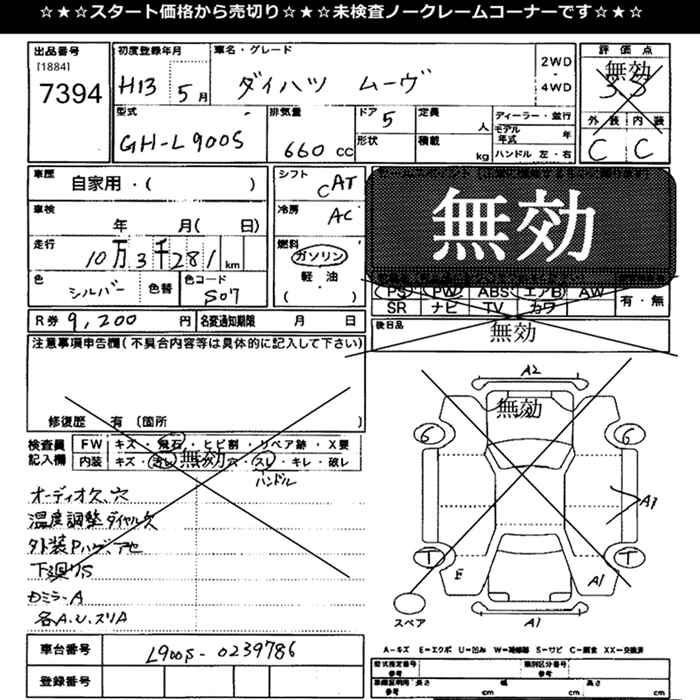 ☆★☆スタート価格から売切り☆★☆未検査ノークレームコーナーです☆★☆
出品番号
[1884]
7394
初度登録年月
H13 5月
車名・グレード
ダイハツ ムーヴ
2WD
・
4WD
評価点
無効
3.5
外装 内装
C C
型式
GH-L900S
排気量
660 cc
ドア
5
形状
定員
人
積載
kg
ディーラー・並行
モデル年式 年
ハンドル 左・右
車歴
自家用・( )
車検
年 月( 日)
走行
10万3千281 km
色
シルバー
色替
色コード
S07
シフト
CAT
冷房
AC
燃料
ガソリン
軽・油
( )
無効
PS PW ABS エアB AW 有・無
SR ナビ TV カワ
R券 9,200 円
名変通知期限 月 日
後日品
無効
注意事項申告欄(不具合内容等は具体的に記入して下さい)
修復歴 有 〔箇所 〕
検査員記入欄
FW キズ・飛石・ヒビ割・リペア跡・X要
内装 キズ・
無効
穴・スレ・キレ・破レ
ハンドル
オーディオ欠、穴
温度調整ダイヤル欠
下廻りS
各A.U.スリA
A2
無効
G G
A1
T T
E A1
A1
スペア
A-キズ E-エクボ U-凹み W-補修跡 S-サビ C-腐食 XX-交換済
車台番号
L900S-0239786
登録番号
型式指定番号
参考
類別区分番号
参考
長さ cm
幅 cm
高さ cm